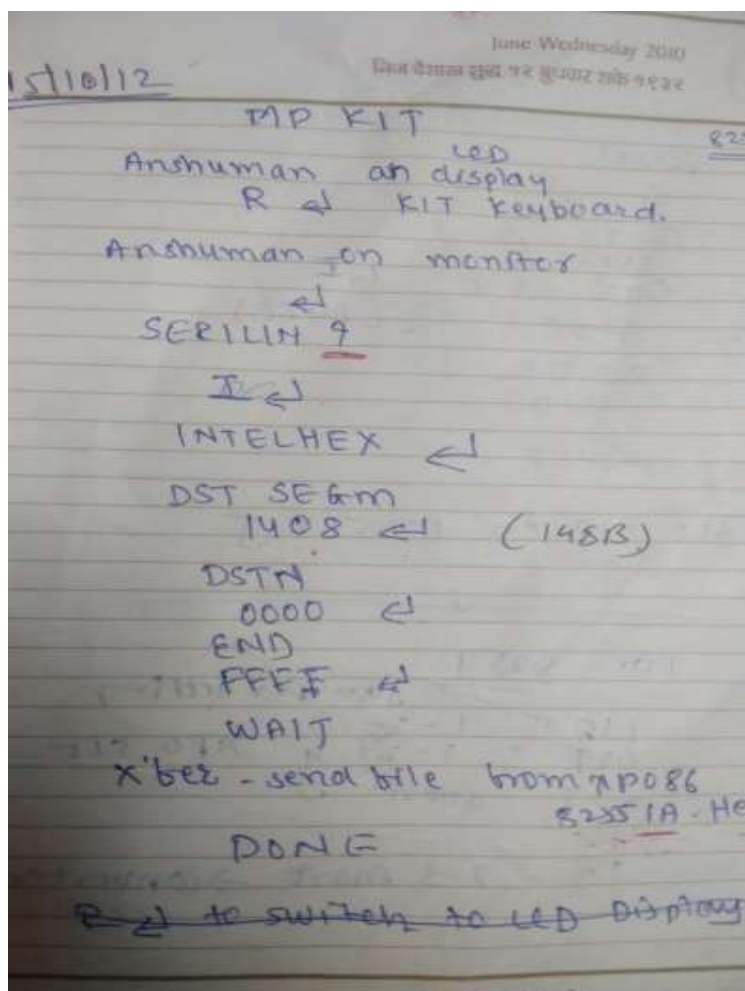 June Wednesday 2010
निज वैशाख शुद्ध १२ बुधवार शके १९३२
15/10/12
MP KIT
825
LED
Anshuman on display
R ↵ KIT Keyboard.
Anshuman on monitor
↵
SERILIN 9
I ↵
INTELHEX ↵
DST SEGM
1408 ↵ (148B)
DSTN
0000 ↵
END
FFFF ↵
WAIT
X'fer - send file from XP086
8255 1A.HE
DONE
R ↵ to switch to LED Display